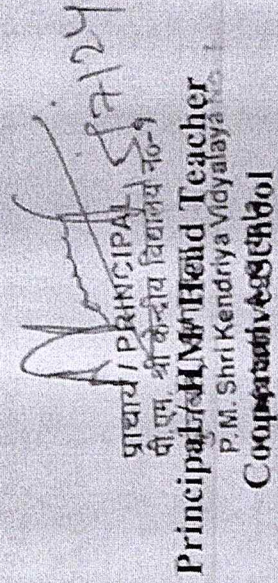 5/7/24
प्राचार्य / PRINCIPAL
पी एम. श्री केन्द्रीय विद्यालय नं०-१
Principal/H.M/ Head Teacher
P. M. Shri Kendriya Vidyalaya No. 1
Cooperative School